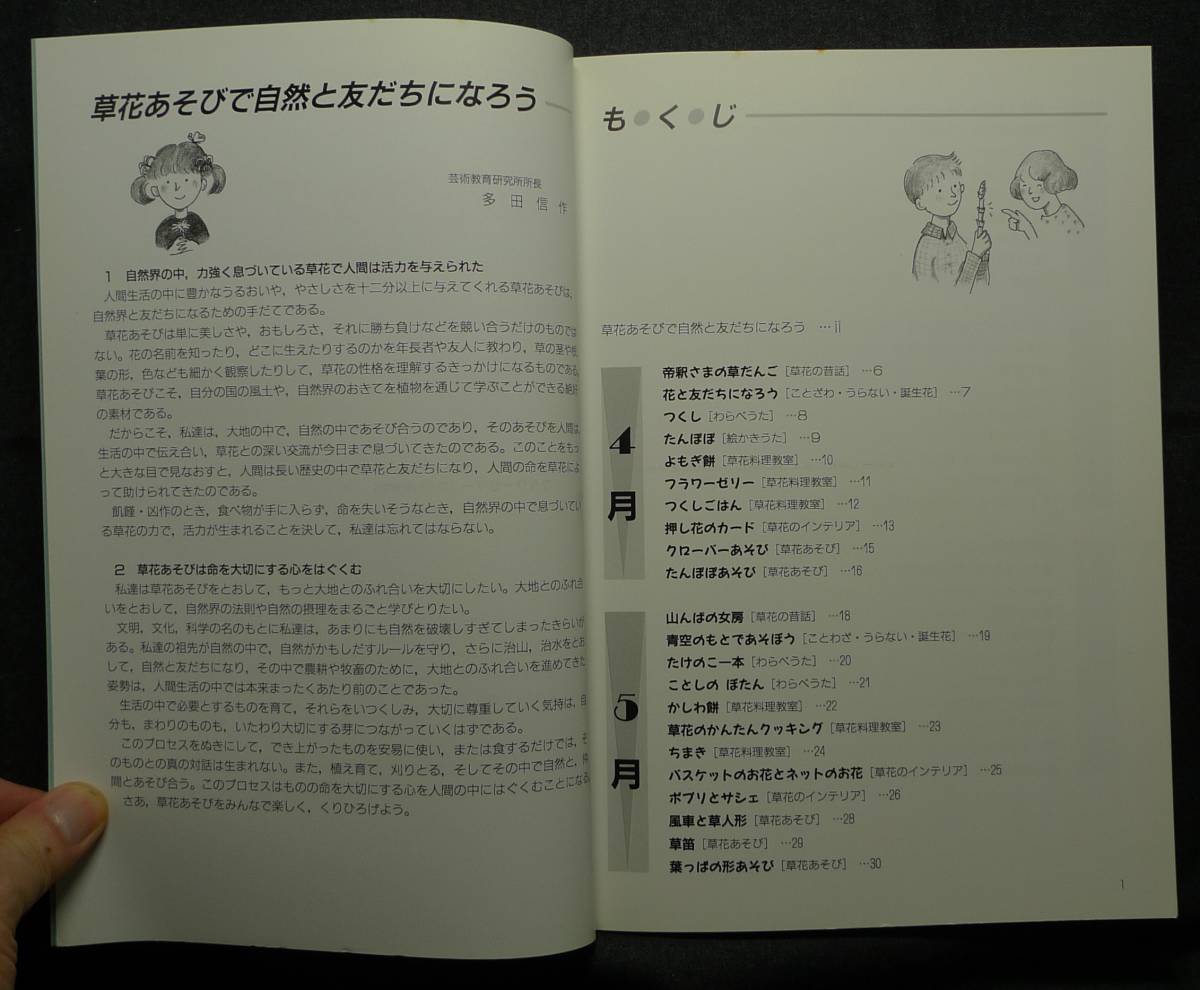 草花あそびで自然と友だちになろう
芸術教育研究所所長
多田信作
1 自然界の中，力強く息づいている草花で人間は活力を与えられた
人間生活の中に豊かなうるおいや，やさしさを十二分以上に与えてくれる草花あそびは，
自然界と友だちになるための手だてである。
草花あそびは単に美しさや，おもしろさ，それに勝ち負けなどを競い合うだけのものでは
ない。花の名前を知ったり，どこに生えたりするのかを年長者や友人に教わり，草の茎や
葉の形，色なども細かく観察したりして，草花の性格を理解するきっかけになるものである。
草花あそびこそ，自分の国の風土や，自然界のおきてを植物を通じて学ぶことができる絶好
の素材である。
だからこそ，私達は，大地の中で，自然の中であそび合うのであり，そのあそびを人間は，
生活の中で伝え合い，草花との深い交流が今日まで息づいてきたのである。このことをもっ
と大きな目で見なおすと，人間は長い歴史の中で草花と友だちになり，人間の命を草花によ
って助けられてきたのである。
飢饉・凶作のとき，食べ物が手に入らず，命を失いそうなとき，自然界の中で息づいてい
る草花の力で，活力が生まれることを決して，私達は忘れてはならない。
2 草花あそびは命を大切にする心をはぐくむ
私達は草花あそびをとおして，もっと大地とのふれ合いを大切にしたい。大地とのふれ合
いをとおして，自然界の法則や自然の摂理をまるごと学びとりたい。
文明，文化，科学の名のもとに私達は，あまりにも自然を破壊しすぎてしまったきらいが
ある。私達の祖先が自然の中で，自然がかもしだすルールを守り，さらに治山，治水をとお
して，自然と友だちになり，その中で農耕や牧畜のために，大地とのふれ合いを進めてきた
姿勢は，人間生活の中では本来まったくあたり前のことであった。
生活の中で必要とするものを育て，それらをいつくしみ，大切に尊重していく気持は，自
分も，まわりのものも，いたわり大切にする芽につながっていくはずである。
このプロセスをぬきにして，でき上がったものを安易に使い，または食するだけでは，そ
のものとの真の対話は生まれない。また，植え育て，刈りとる，そしてその中で自然と，仲
間とあそび合う。このプロセスはものの命を大切にする心を人間の中にはぐくむことになる。
さあ，草花あそびをみんなで楽しく，くりひろげよう。
も●く●じ
草花あそびで自然と友だちになろう …ii
4月
帝釈さまの草だんご［草花の昔話］…6
花と友だちになろう［ことざわ・うらない・誕生花］…7
つくし［わらべうた］…8
たんぽぽ［絵かきうた］…9
よもぎ餅［草花料理教室］…10
フラワーゼリー［草花料理教室］…11
つくしごはん［草花料理教室］…12
押し花のカード［草花のインテリア］…13
クローバーあそび［草花あそび］…15
たんぽぽあそび［草花あそび］…16
5月
山んばの女房［草花の昔話］…18
青空のもとであそぼう［ことわざ・うらない・誕生花］…19
たけのこ一本［わらべうた］…20
ことしの ぼたん［わらべうた］…21
かしわ餅［草花料理教室］…22
草花のかんたんクッキング［草花料理教室］…23
ちまき［草花料理教室］…24
バスケットのお花とネットのお花［草花のインテリア］…25
ポプリとサシェ［草花のインテリア］…26
風車と草人形［草花あそび］…28
草笛［草花あそび］…29
葉っぱの形あそび［草花あそび］…30
1